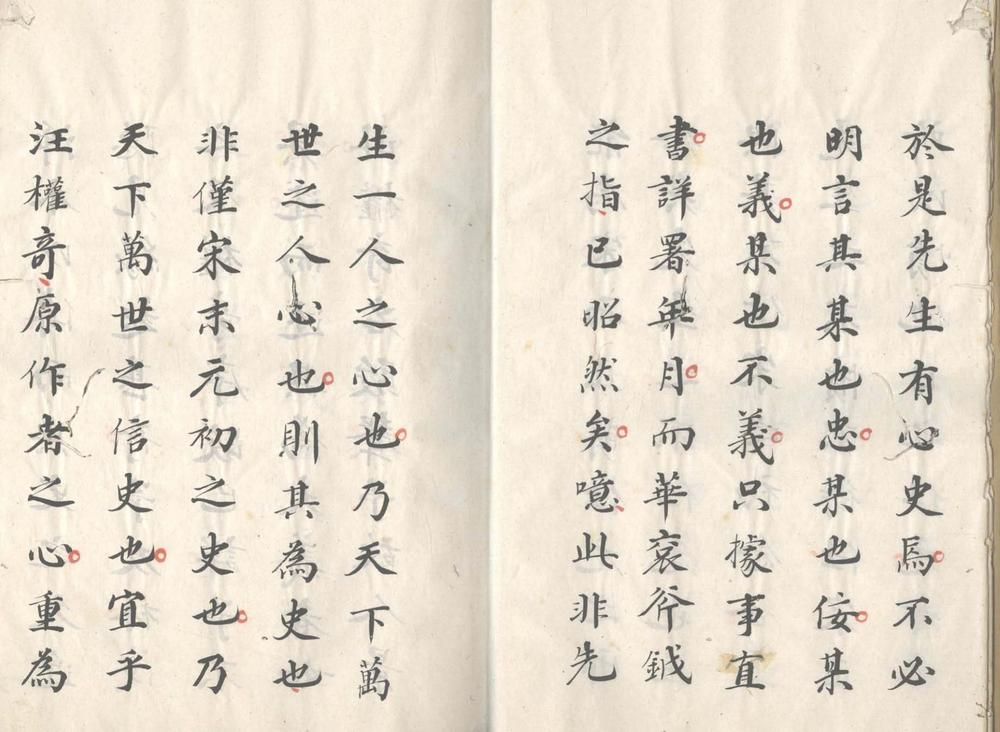 於是先生有心史焉不必
明言其某也忠某也佞某
也義某也不義只據事直
書詳署年月而華袞斧鉞
之指已昭然矣噫此非先
生一人之心也乃天下萬
世之人心也則其為史也
非僅宋末元初之史也乃
天下萬世之信史也宜乎
汪權奇原作者之心重為